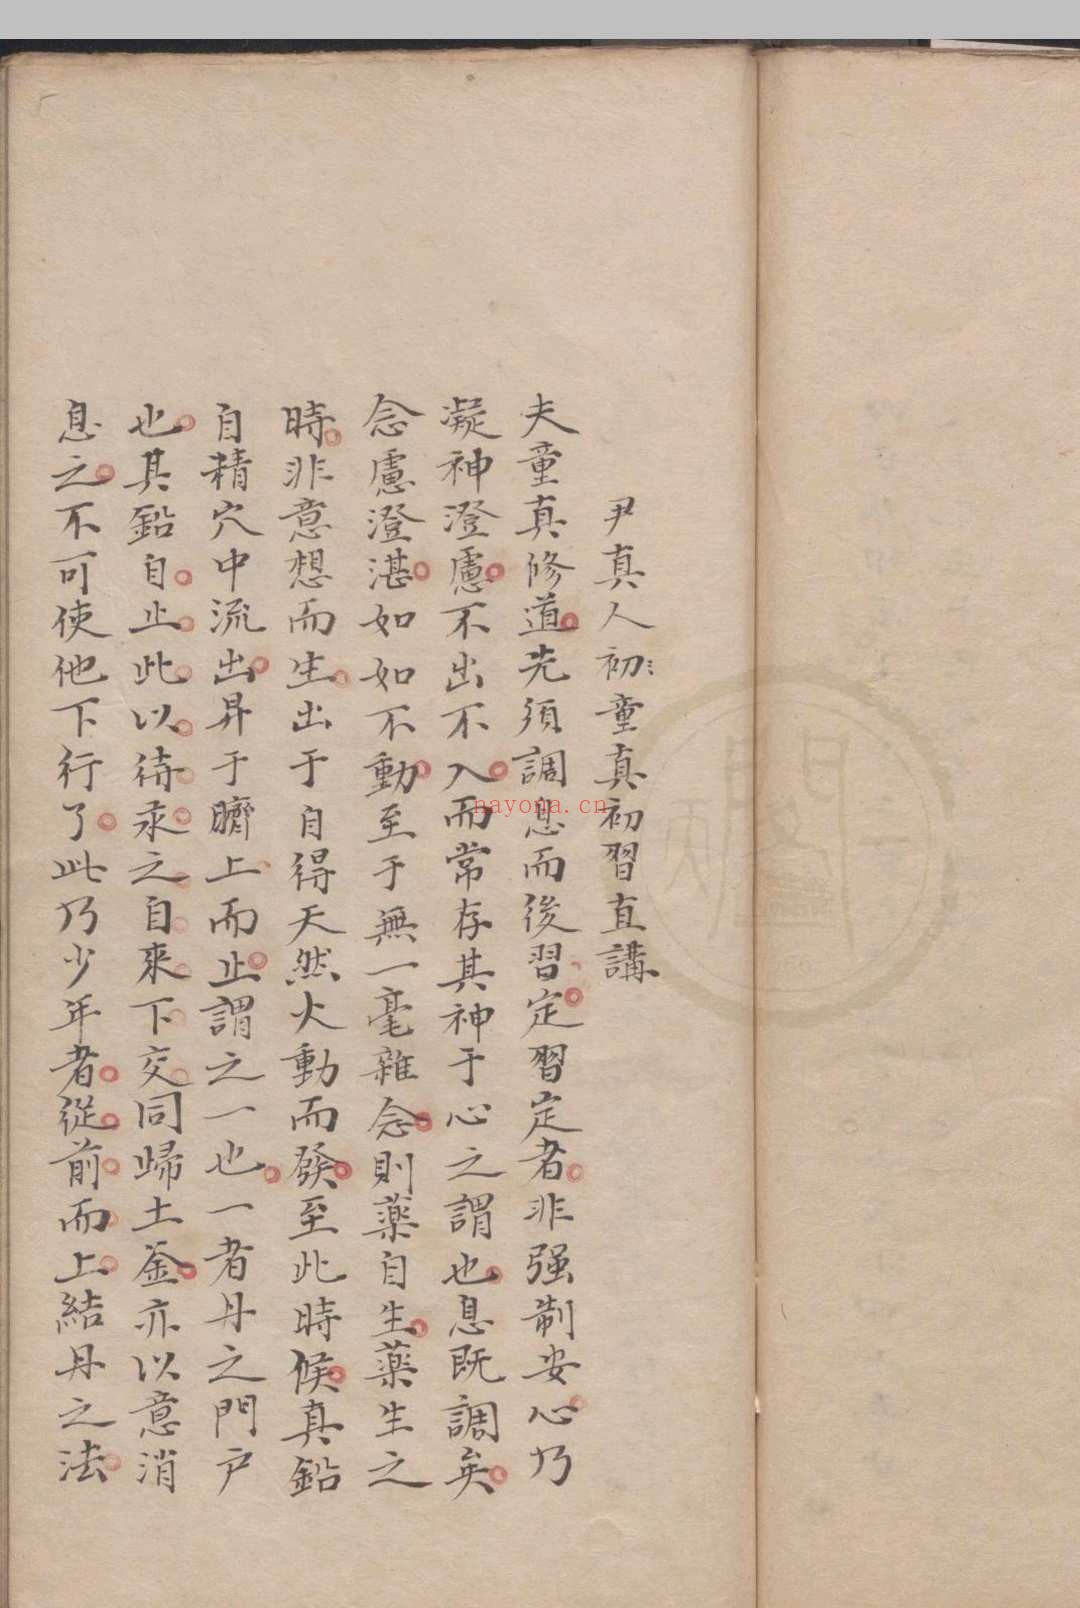 尹真人初童真初習直講
夫童真修道先須調息而後習定習定者非强制安心乃
凝神澄慮不出不入而常存其神于心之謂也息既調矣
念慮澄湛如如不動至于無一毫雜念則藥自生藥生之
時非意想而生出于自得天然火動而發至此時候真鉛
自精穴中流出昇于臍上而止謂之一也一者丹之門户
也其鉛自止此以待汞之自來下交同歸土釜亦以意消
息之不可使他下行了此乃少年者從前而上結丹之法
nayona.cn